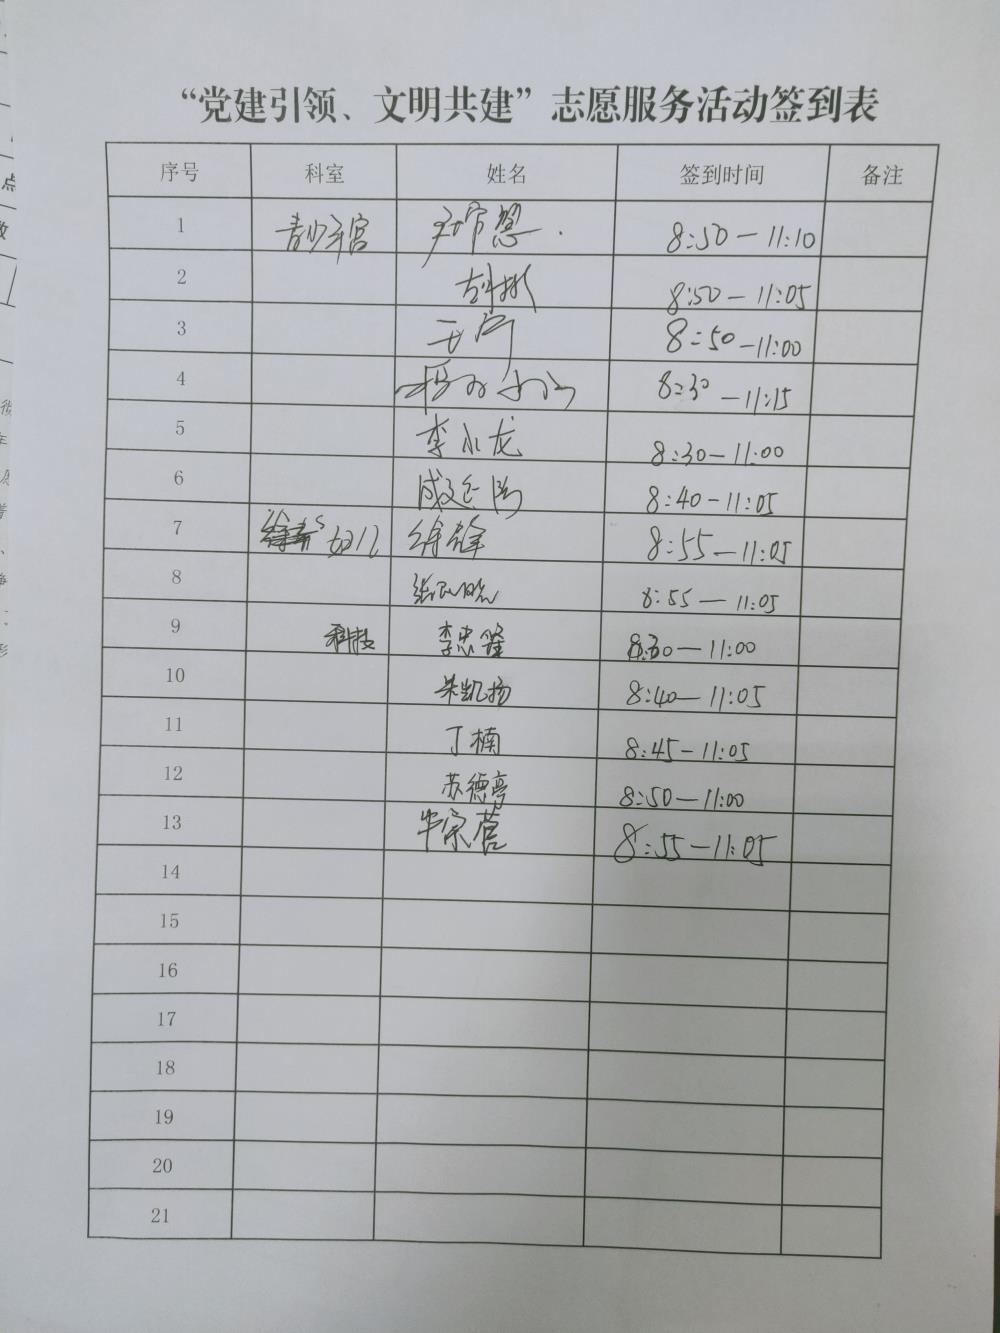 “党建引领、文明共建”志愿服务活动签到表
序号 科室 姓名 签到时间 备注
1 青少年宫 8:50—11:10
2 8:50—11:05
3 8:50—11:00
4 8:30—11:15
5 李小龙 8:30—11:00
6 8:40—11:05
7 妇儿 徐锋 8:55—11:05
8 8:55—11:05
9 科技 李忠隆 8:30—11:00
10 朱凯扬 8:40—11:05
11 丁楠 8:45—11:05
12 苏德亭 8:50—11:00
13 牛宗营 8:55—11:05
14
15
16
17
18
19
20
21